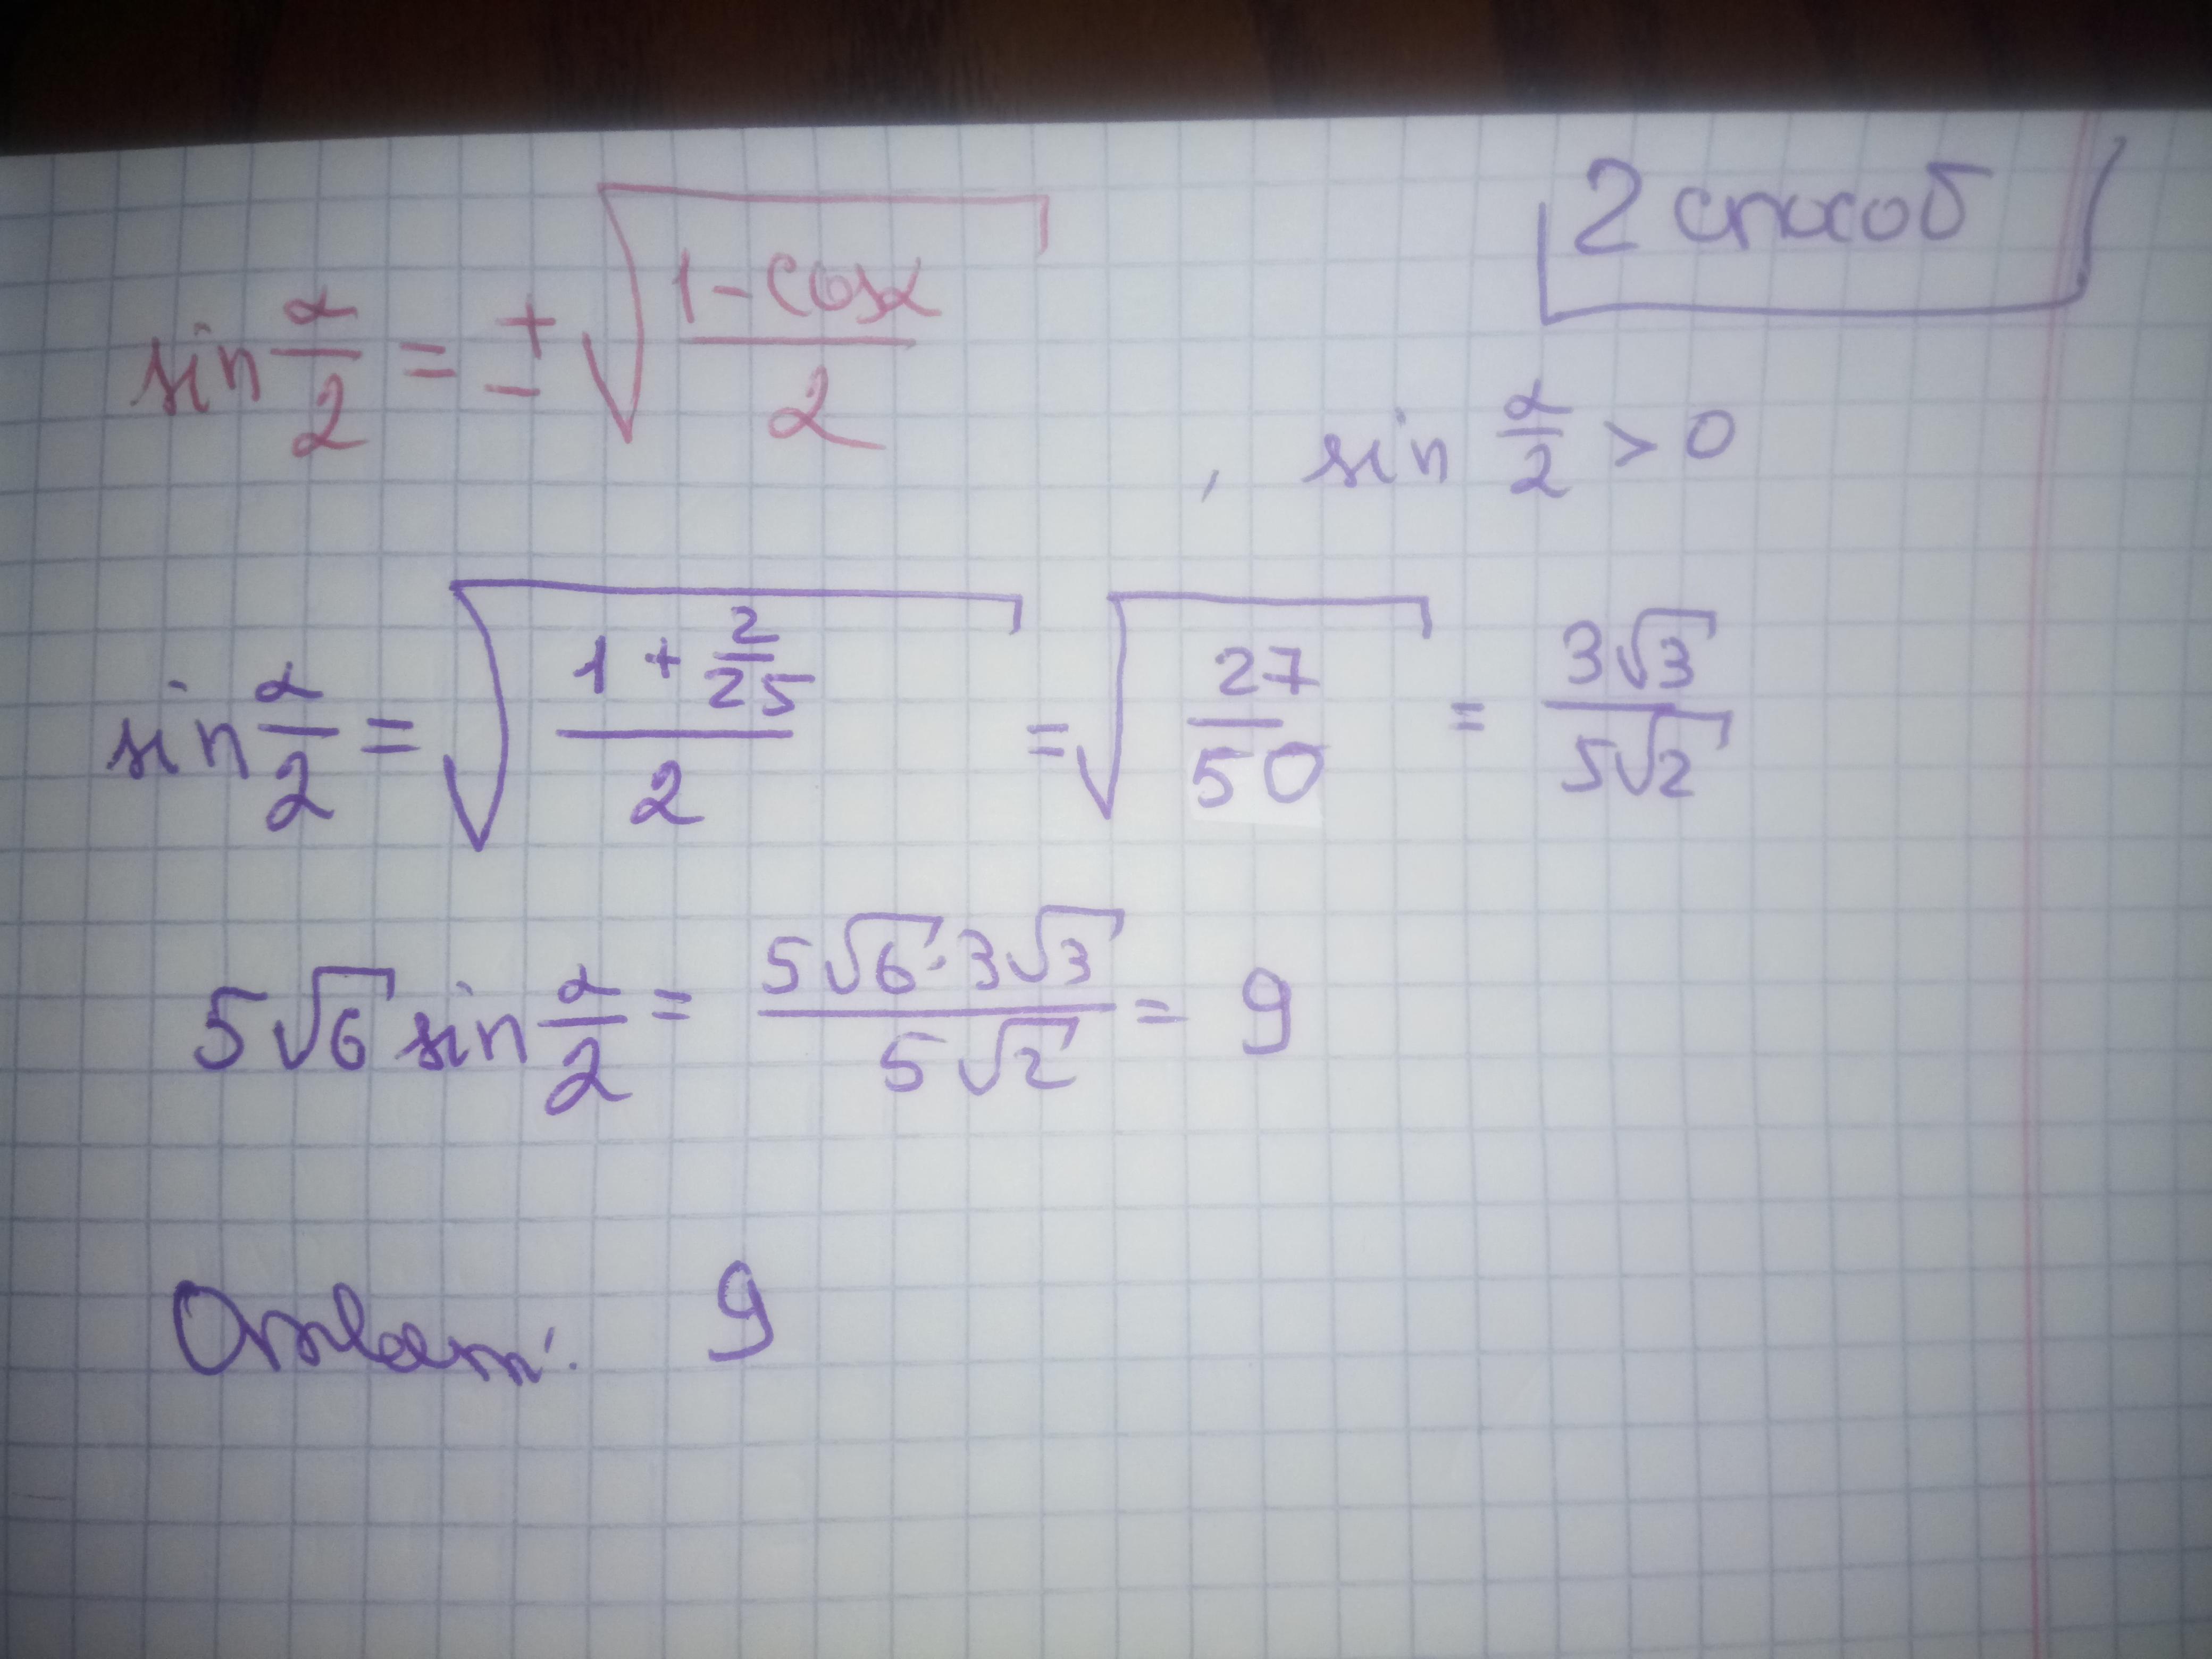 2 способ
sin α/2 = ± √((1 - cosα)/2) , sin α/2 > 0
sin α/2 = √((1 + 2/25)/2) = √(27/50) = 3√3/5√2
5√6 sin α/2 = (5√6 · 3√3)/(5√2) = 9
Ответ: 9